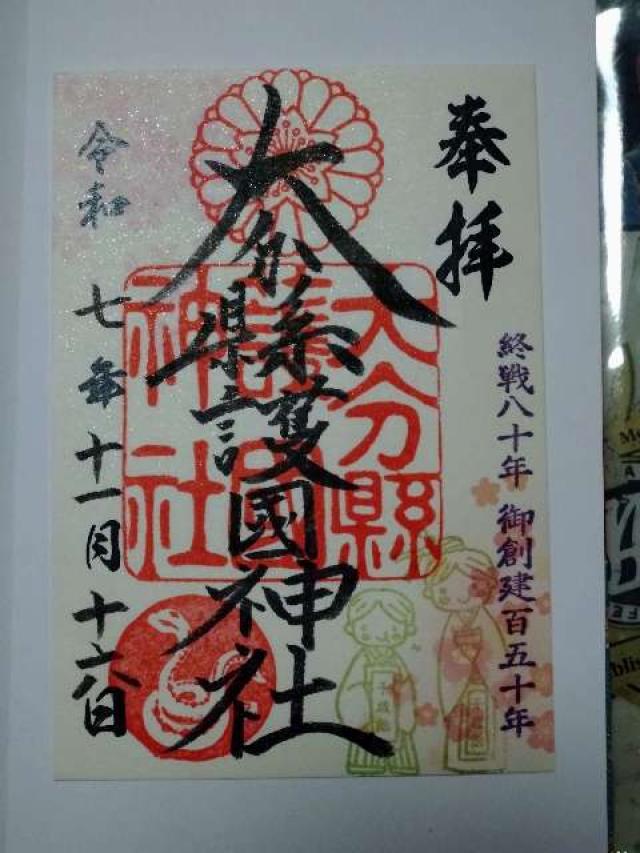 奉拝
終戦八十年 御創建百五十年
大分縣護國神社
大分縣
護國
神社
令和 七年 十一月 十六日